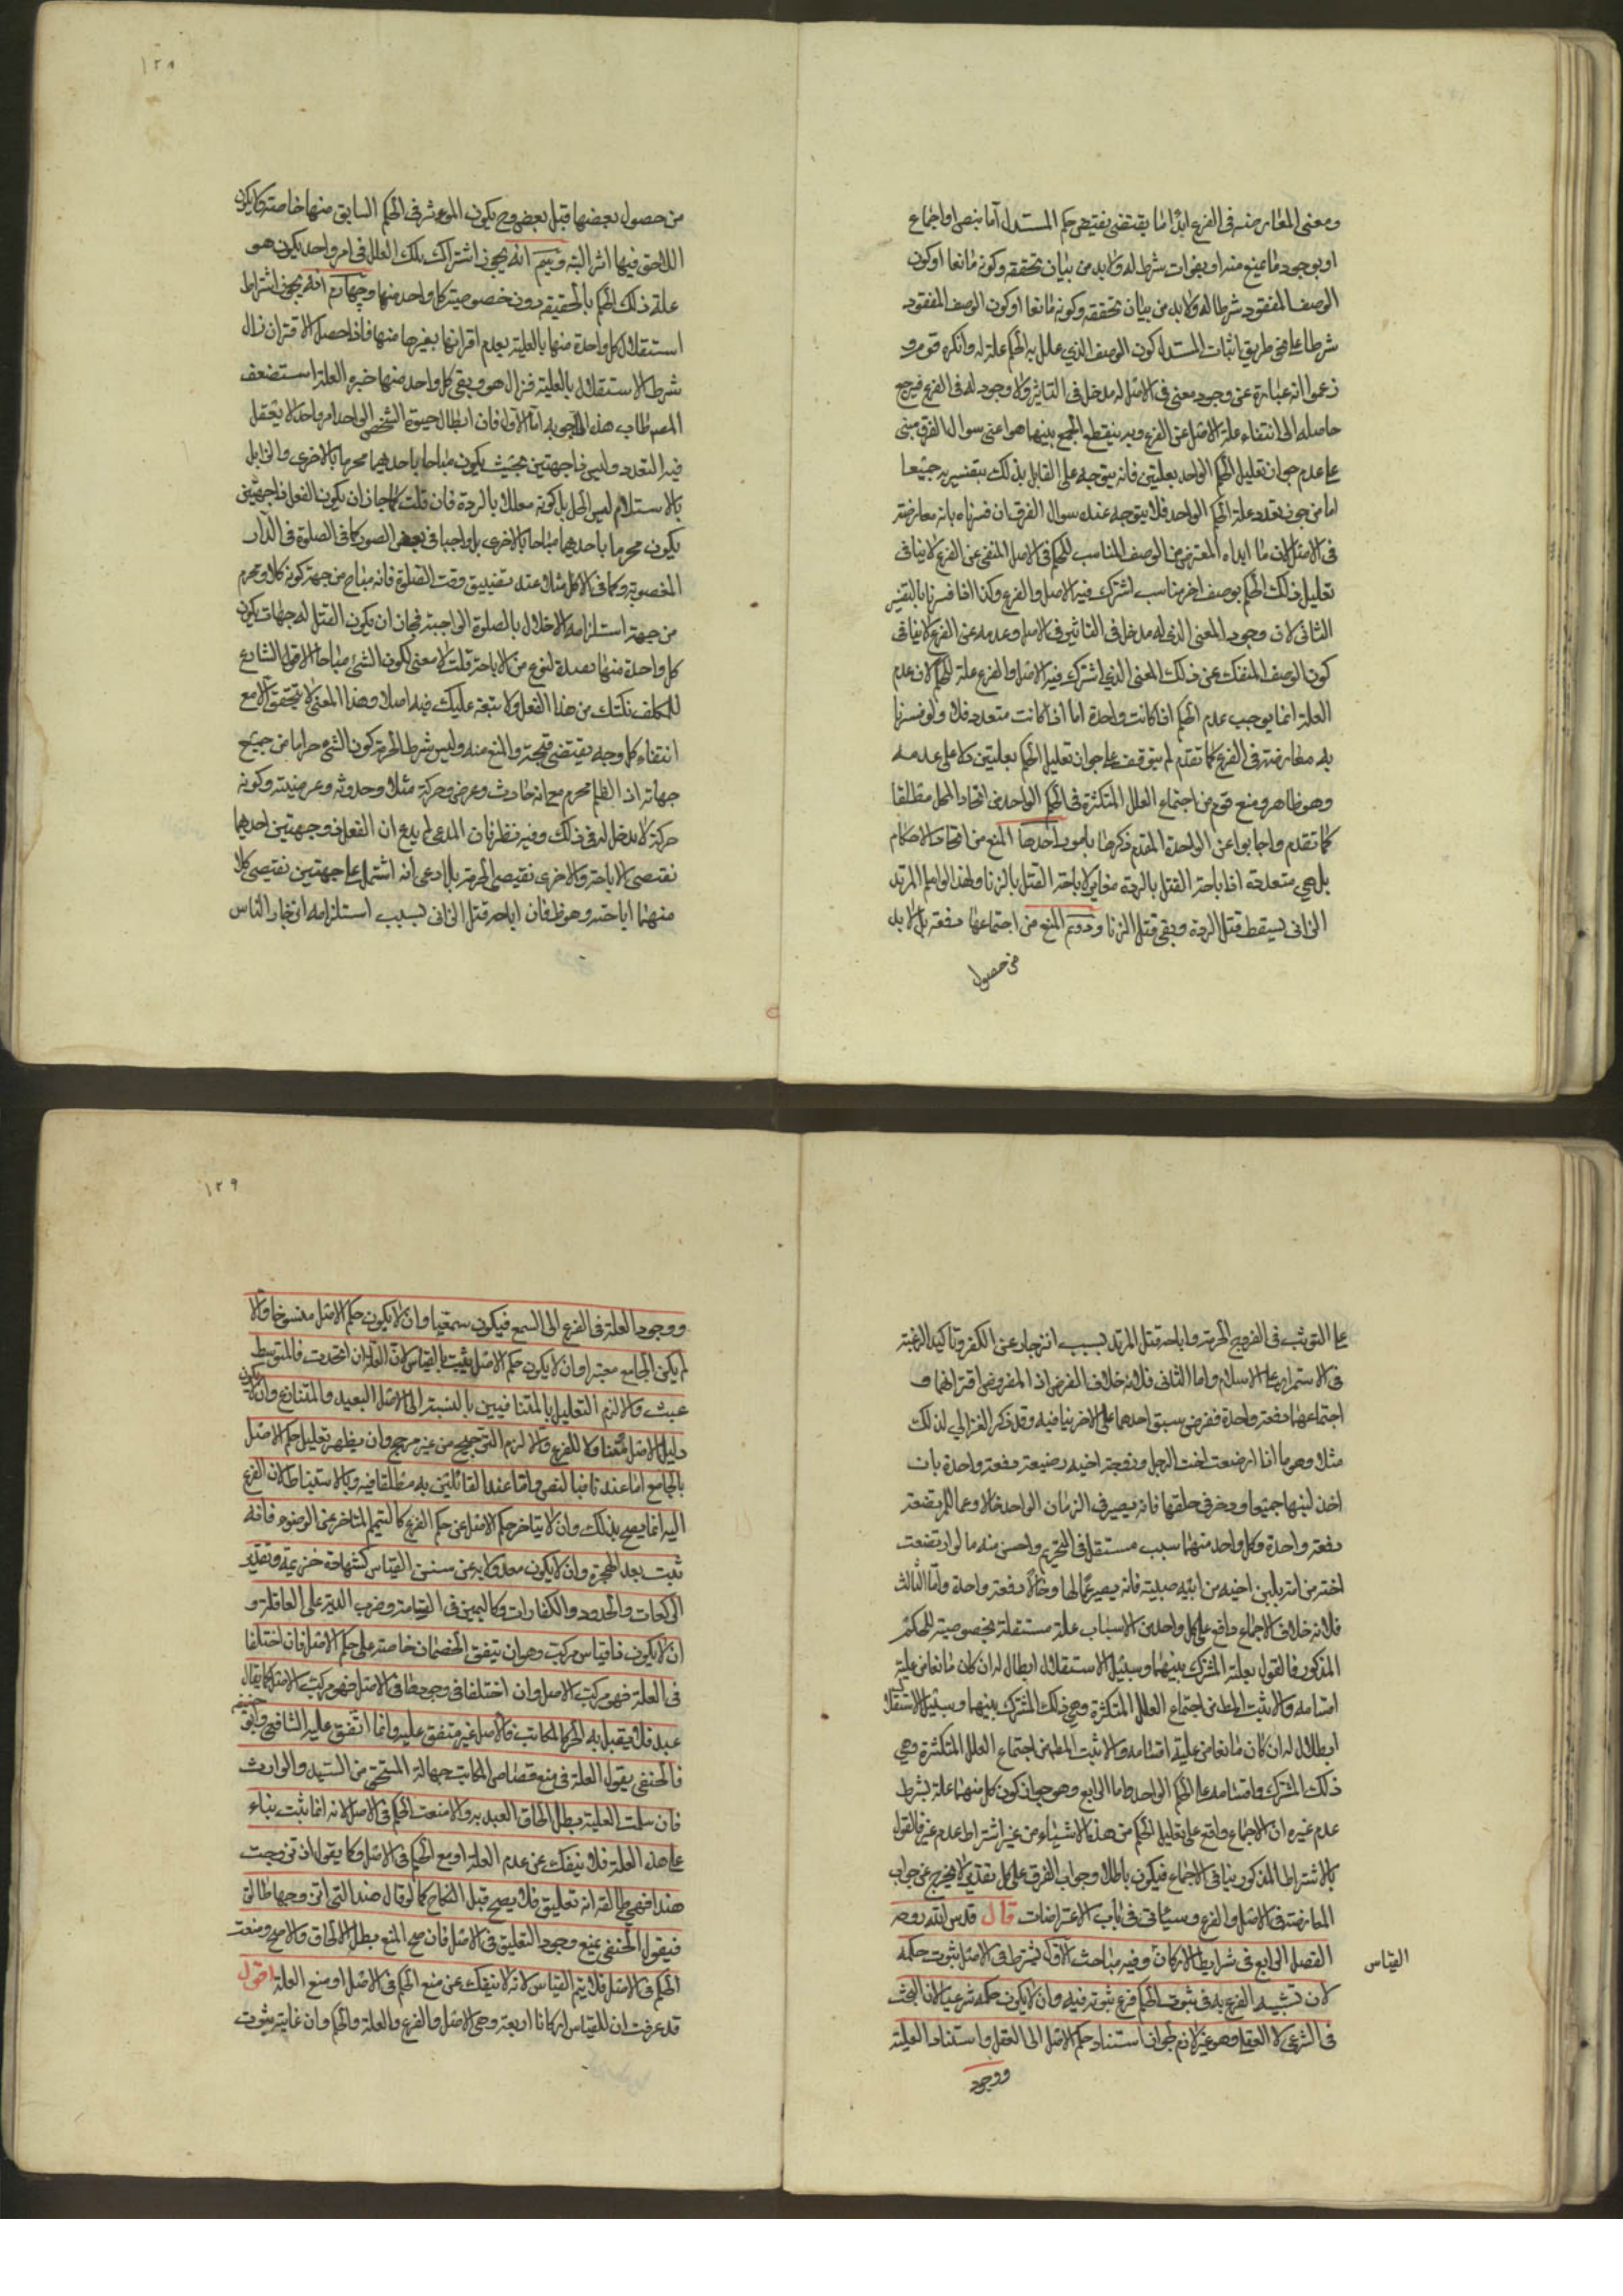 ومعنى المعارضة فى الفرع ابداء ما يقتضى نقيض حكم المستدل اما بنص او اجماع
او بوجود مانع منه او بفوات شرط له ولا بد من بيان تحققه وكونه مانعا او كون
الوصف المفقود شرطا له ولا بد من بيان تحققه وكونه مانعا او كون الوصف المفقود
شرطا على طريق اثبات المستدل كون الوصف الذي علل به الحكم علة له وانكره قوم و
زعموا انه عبارة عن وجود معنى فى الاصل له مدخل فى التاثير ولا وجود له فى الفرع فيرجع
حاصله الى انتفاء علة الاصل عن الفرع وبه ينقطع الجمع بينهما هو اعنى سوال الفرق مبنى
على عدم جواز تعليل الحكم الواحد بعلتين فانه يتوجه على القايل بذلك بتفسيريه جميعا
اما من جوز تعدد علة الحكم الواحد فلا يتوجه عنده سوال الفرق ان فسرناه بانه معارضة
فى الاصل لان ما ابداه المعترض من الوصف المناسب للحكم فى الاصل المنفى عن الفرع لا ينافى
تعليل ذلك الحكم بوصف اخر مناسب اشترك فيه الاصل والفرع وكذا اذا فسرناه بالتفسير
الثانى لان وجود المعنى الذى له مدخل فى التاثير فى الاصل وعدمه عن الفرع لا ينافى
كون الوصف المنفك عن ذلك المعنى الذي اشترك فيه الاصل والفرع علة للحكم لان عدم
العلة انما يوجب عدم الحكم اذا كانت واحدة اما اذا كانت متعددة فلا ولو فسرنا
به معارضة فى الفرع كما تقدم لم يتوقف على جواز تعليل الحكم بعلتين ولا على عدمه
وهو ظاهر ومنع قوم من اجتماع العلل المتكثرة فى الحكم الواحد من اتحاد المحل مطلقا
كما تقدم واجابوا عن الواحدة المقدم ذكرها بامور احدها المنع من اتحاد الاحكام
بل هي متعددة اذ اباحة القتل بالردة مغاير لاباحة القتل بالزنا ولهذا لو اسلم المرتد
الزانى يسقط قتل الردة وبقى قتل الزنا ودوم المنع من اجتماعها دفعة بل لا بد
من حصول
١٢٨
من حصول بعضها قبل بعض وح يكون الموثر فى الحكم السابق منها خاصة ولا يكون
اللاحق فيها اثر البتة وسيم انه يجوز اشتراك تلك العلل فى امر واحد يكون هو
علة ذلك الحكم بالحقيقة دون خصوصية كل واحد منها وچهارم انه يجوز اشتراط
استقلال كل واحدة منها بالعلية بعدم اقترانها بغيرها منها فاذا حصل الاقتران زال
شرط الاستقلال بالعلية فزال هو وبقى كل واحد منها جزء العلة استضعف
المص طاب هذه الاجوبة اما الاول فان ابطال حيوة الشخص الواحد امر واحد لا يعقل
فيه التعدد وليس ذا جهتين بحيث يكون مباحا باحديهما محرما بالاخرى والزايل
بالاسلام ليس الحل بل كونه معللا بالردة فان قلت كما جاز ان يكون الفعل ذا جهتين
يكون محرما باحديهما مباحا بالاخرى بل واجبا فى بعض الصور كما فى الصلوة فى الدار
المغصوبة وكما فى الاكل مثلا عند تضييق وقت الصلوة فانه مباح من جهة كونه اكلا ومحرم
من جهة استلزامه الاخلال بالصلوة الواجبة فجاز ان يكون القتل له جهات يكون
كل واحدة منها مصدرة لنوع من الاباحة قلت لا معنى لكون الشئ مباحا الا قول الشارع
للمكلف مكنتك من هذا الفعل ولا تبعة عليك فيه اصلا وهذا المعنى لا يتحقق الا مع
انتفاء كل وجه يقتضى قبحه والمنع منه وليس شرط الحرمة كون الشئ حراما من جميع
جهاته اذ الظلم محرم مع انه حادث وعرض وحركة مثلا وحدوثه وعرضيته وكونه
حركة لا مدخل له فى ذلك وفيه نظر فان المدعى لم يدع ان الفعل ذو جهتين احدهما
تقتضى الاباحة والاخرى تقتضى الحرمة بل ادعى انه اشتمل على جهتين تقتضى كلا
منهما اباحته وهو ظ فان اباحة قتل الزانى بسبب استلزامه انزجار الناس
على التوثب فى الفروج المحرمة واباحة قتل المرتد بسبب انزجاره عن الكفر وتاكيد الرغبة
فى الاستمرار على الاسلام واما الثانى فلانه خلاف الفرض اذ المفروض اقترانهما و
اجتماعهما دفعة واحدة ففرض سبق احدهما على الاخر ينافيه وقد ذكر الغزالي لذلك
مثلا وهو ما اذا ارضعت اخت الرجل وزوجة اخيه رضيعة دفعة واحدة بان
اخذ لبنهما جميعا ودخر فى حلقها فانه يصير فى الزمان الواحد خالا وعما للمرتضعة
دفعة واحدة وكل واحد منهما سبب مستقل فى التحريم واحسن منه ما لو ارتضعت
اخته من امه بلبن اخيه من ابيه صبية فانه يصير عما لها وخالا دفعة واحدة واما الثالث
فلانه خلاف الاجماع واقع على كل واحد من الاسباب علة مستقلة بخصوصيته للحكم
المذكور فالقول بعلية المشترك بينهما وسبيل الاستقلال ابطال له ان كان مانعا من علية
اقسامه والا ثبت المط من اجتماع العلل المتكثرة وهي ذلك المشترك بينهما وسبيل الاستقلال
ابطال له ان كان مانعا من علية اقسامه والا ثبت المط من اجتماع العلل المتكثرة وهي
ذلك المشترك واقسامه على الحكم الواحد واما الرابع وهو جواز كون كل منهما علة بشرط
عدم غيره ان الاجماع واقع على تعليل الحكم من هذه الاشياء من غير اشتراط عدم غيره فالقول
بالاشتراط المذكور ينافى الاجماع فيكون باطلا وجواب الفرق على كل تقدير لا يخرج عن جواب
المعارضة فى الاصل والفرع وسياتى فى باب الاعتراضات قال قدس الله روحه
القياس
الفصل الرابع فى شرايط الاركان وفيه مباحث الاول يشترط فى الاصل ثبوت حكمه
لان تشبيه الفرع به فى ثبوت الحكم فرع ثبوته فيه وان لا يكون حكمه شرعيا لان البحث
فى الشرعى لا العقلى وهو غير لازم لجواز استناد حكم الاصل الى العقل واستناد العلية
ووجود
١٢٩
ووجود العلة فى الفرع الى السمع فيكون سمعيا وان لا يكون حكم الاصل منسوخا والا
لم يكن الجامع معتبرا وان لا يكون حكم الاصل يثبت بالقياس لان العلة ان اتحدت فالمتوسط
عبث والا لزم التعليل بالمتنافيين بالنسبة الى الاصل البعيد والمتنازع وان لا يكون
دليل الاصل متناولا للفرع والا لزم الترجيح من غير مرجح وان يظهر تعليل حكم الاصل
بالجامع اما عندنا فبالنص واما عند القائلين به مطلقا فبه وبالاستنباط لان الفرع
اليه انما يصح بذلك وان لا يتاخر حكم الاصل عن حكم الفرع كالتيمم المتاخر عن الوضوء فانه
ثبت بعد الهجرة وان لا يكون معدولا به عن سنن القياس كشهادة خزيمة وتقدير
الركعات والحدود والكفارات وكاليمين فى القسامة وضرب الدية على العاقلة و
ان لا يكون ذا قياس مركب وهو ان يتفق الخصمان خاصة على حكم الاصل فان اختلفا
فى العلة فهو مركب الاصل وان اختلفا فى وجودها فى الاصل فهو مركب الاصل كما يقال
عبد فلا يقتل به الحر كالمكاتب فالاصل غير متفق عليه وانما اتفق عليه الشافعى وابو حنيفة
فالحنفى يقول العلة فى منع قصاص المكاتب جهالة المستحق من السيد والوارث
فان سلمت العلية بطل الحاق العبد به والا منعت الحكم فى الاصل لانه انما ثبت بناء
على هذه العلة فلا ينفك عن عدم العلة او منع الحكم فى الاصل وكما يقول ان تزوجت
هندا فهي طالق انه تعليق فلا يصح قبل النكاح كما لو قال هند التى اتزوجها طالق
فيقول الحنفى يمنع وجود التعليق فى الاصل فان صح المنع بطل الالحاق والا صح ومنعت
الحكم فى الاصل فلا يتم القياس لانه لا ينفك عن منع الحكم فى الاصل او منع العلة اقول
قد عرفت ان للقياس اركانا اربعة وهى الاصل والفرع والعلة والحكم وان غايته ثبوت